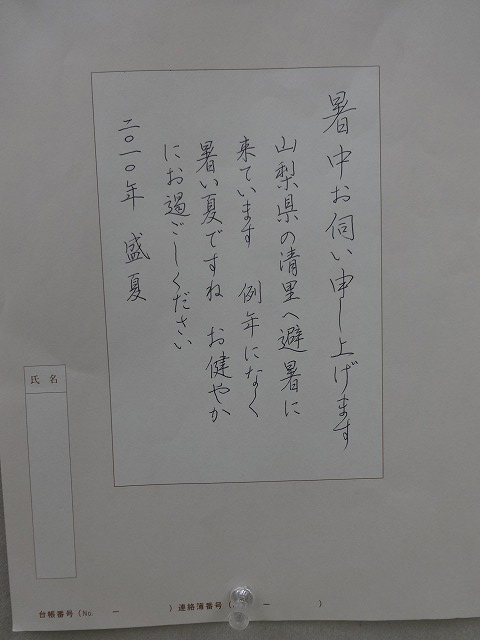 暑中お伺い申し上げます
山梨県の清里へ避暑に
来ています 例年になく
暑い夏ですね お健やか
にお過ごしください
二〇一〇年 盛夏
氏名
台帳番号（No. － ）連絡簿番号（ － ）